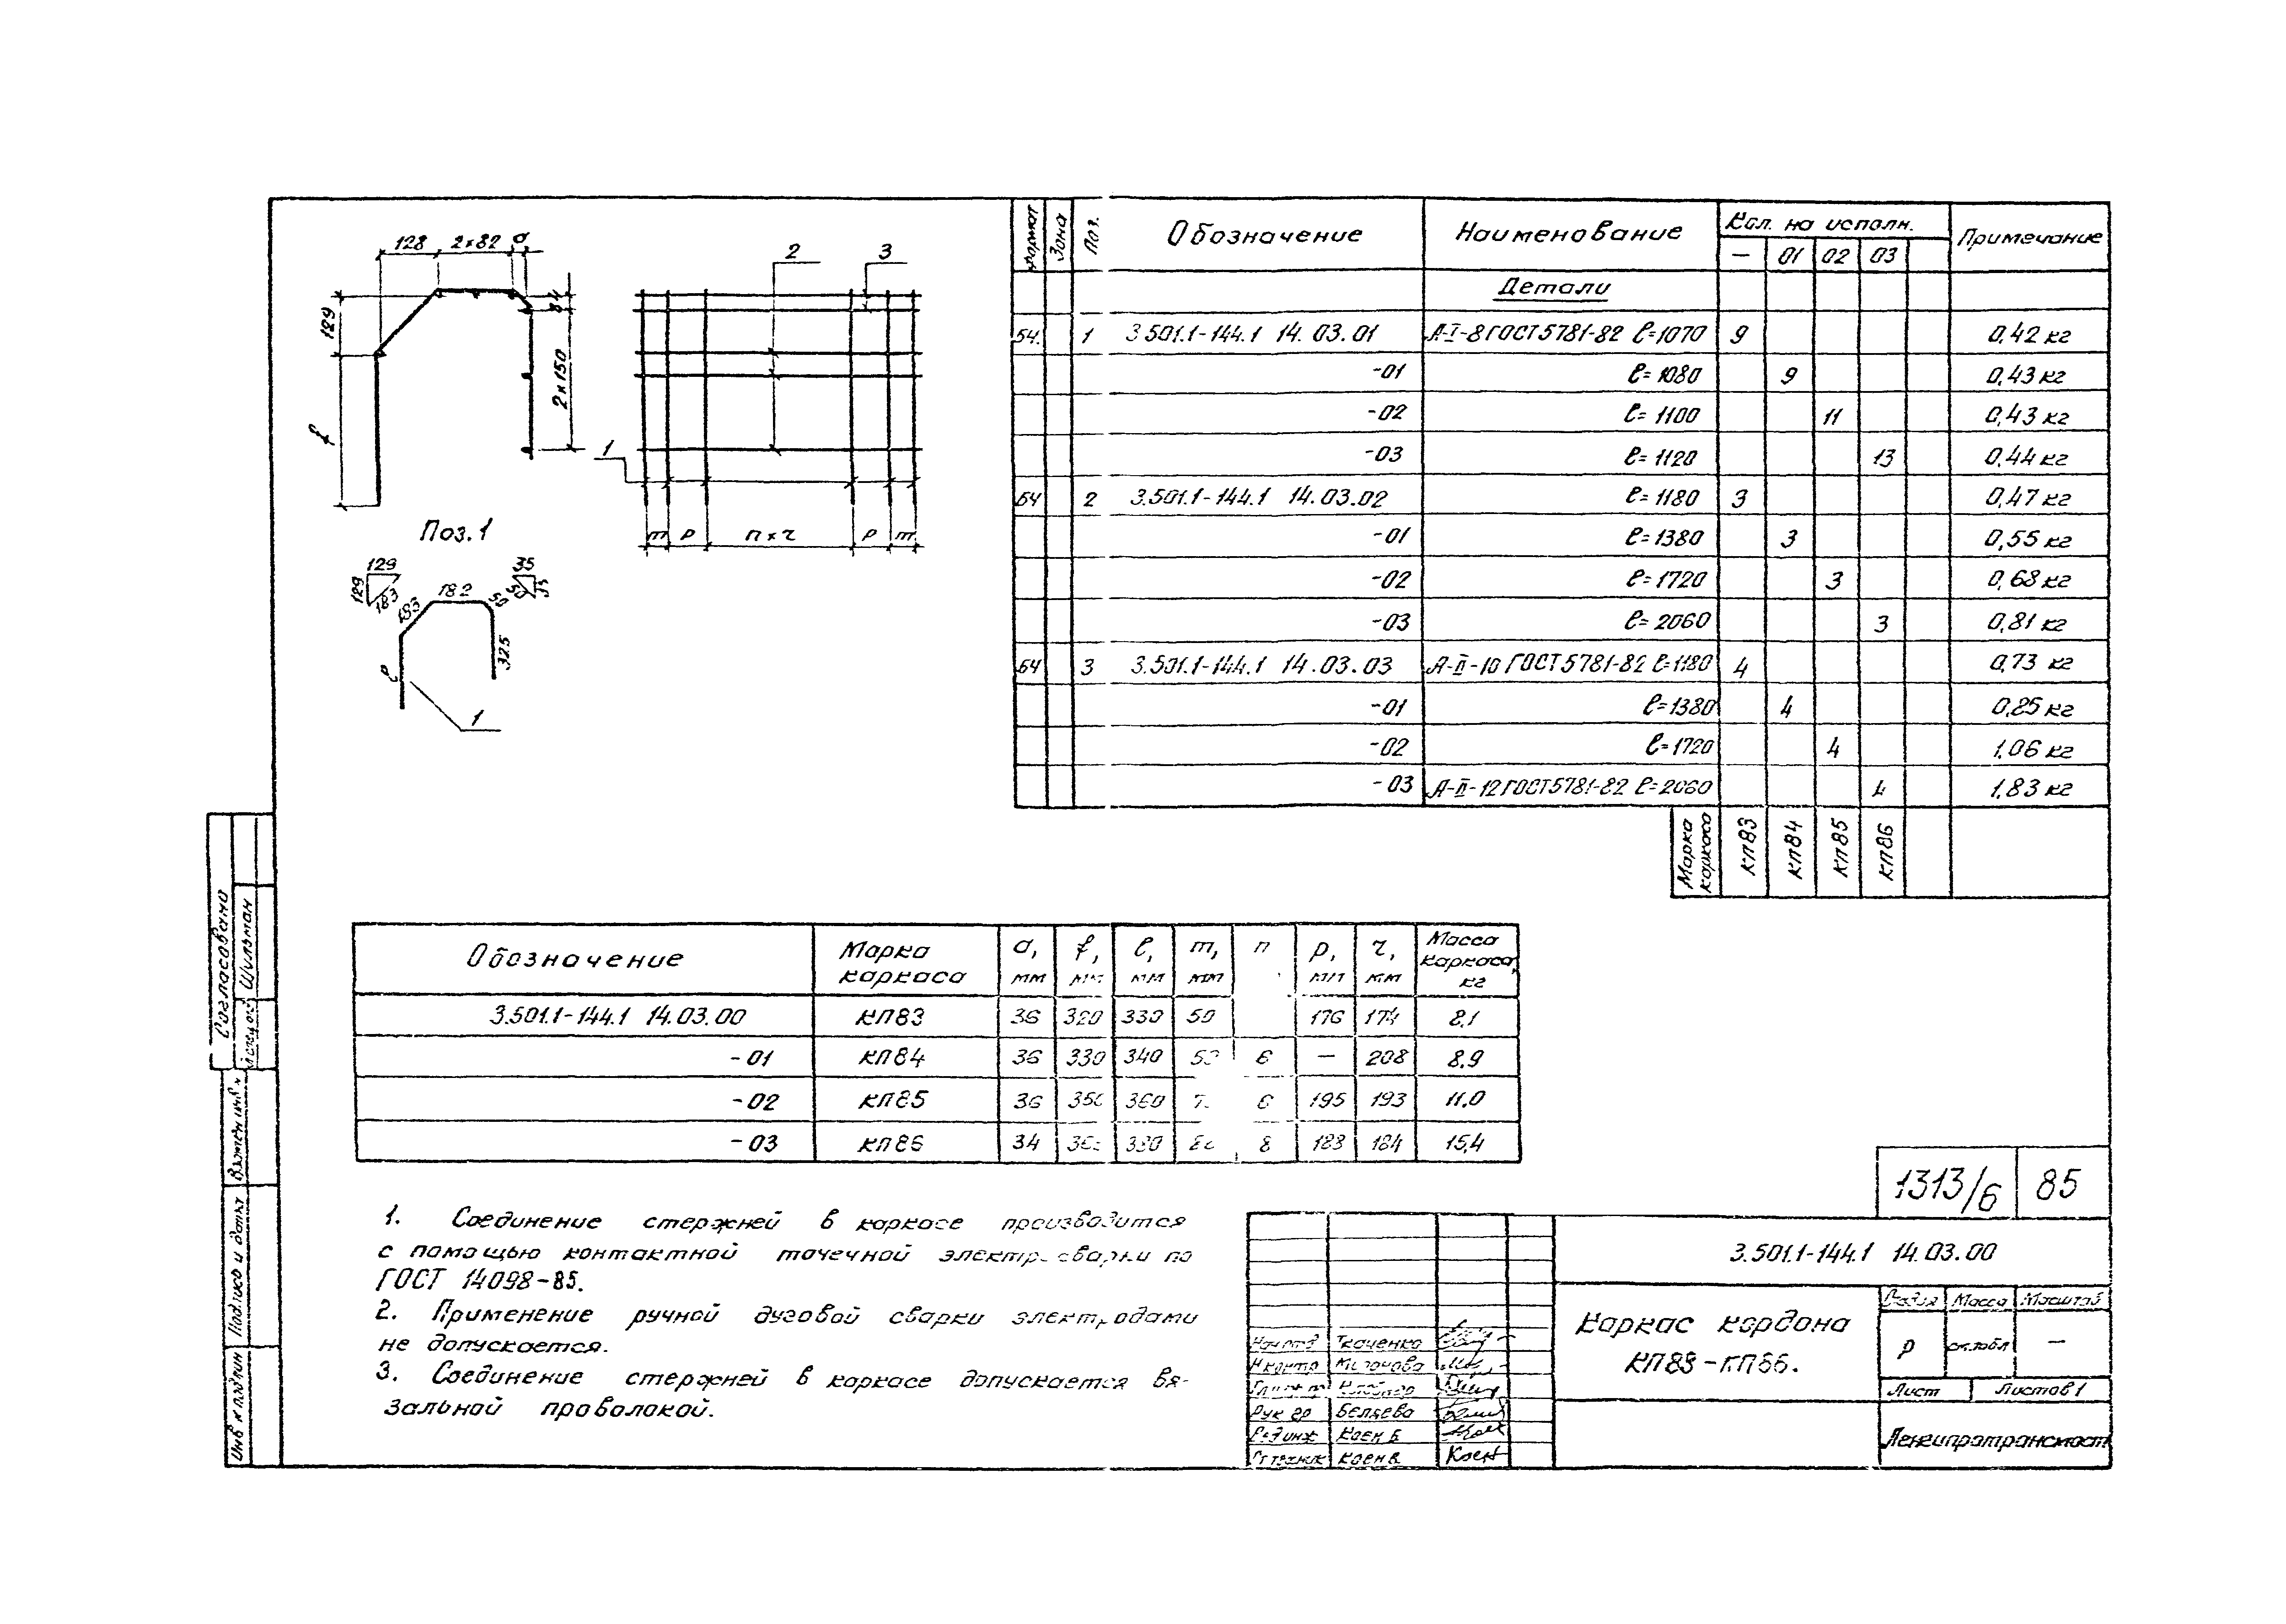 128 2×82 а
129
84
2×150
f
2 3
1
m р п×r р m
Поз.1
129
129
183
183
182
50
50
35
35
325
ℓ
1
Формат Зона Поз. Обозначение Наименование Кол. на исполн. Примечание
— 01 02 03
Детали
БЧ. 1 3.501.1-144.1 14.03.01 А-I-8 ГОСТ 5781-82 ℓ=1070 9 0,42 кг
-01 ℓ=1080 9 0,43 кг
-02 ℓ=1100 11 0,43 кг
-03 ℓ=1120 13 0,44 кг
БЧ 2 3.501.1-144.1 14.03.02 ℓ=1180 3 0,47 кг
-01 ℓ=1380 3 0,55 кг
-02 ℓ=1720 3 0,68 кг
-03 ℓ=2060 3 0,81 кг
БЧ 3 3.501.1-144.1 14.03.03 А-II-10 ГОСТ 5781-82 ℓ=1180 4 0,73 кг
-01 ℓ=1380 4 0,85 кг
-02 ℓ=1720 4 1,06 кг
-03 А-II-12 ГОСТ 5781-82 ℓ=2060 4 1,83 кг
Марка каркаса КП83 КП84 КП85 КП86
Обозначение Марка каркаса а, мм f, мм ℓ, мм m, мм п р, мм r, мм Масса каркаса, кг
3.501.1-144.1 14.03.00 КП83 36 320 330 50 176 174 8,1
-01 КП84 36 330 340 6 — 208 8,9
-02 КП85 36 350 360 6 195 193 11,0
-03 КП86 34 380 8 183 184 15,4
1. Соединение стержней в каркасе производится
с помощью контактной точечной электросварки по
ГОСТ 14098-85.
2. Применение ручной дуговой сварки электродами
не допускается.
3. Соединение стержней в каркасе допускается вя-
зальной проволокой.
Согласовано
Шульман
Взамен инв. №
Подпись и дата
Инв № подлин
1313/6 85
3.501.1-144.1 14.03.00
Каркас кордона
КП83-КП86.
Стадия Масса Масштаб
Р см.табл —
Лист Листов 1
Ленгипротрансмост
Нач отд Ткаченко
Н контр
Рук гр Беляева
Ст техник Коен В.
Коен